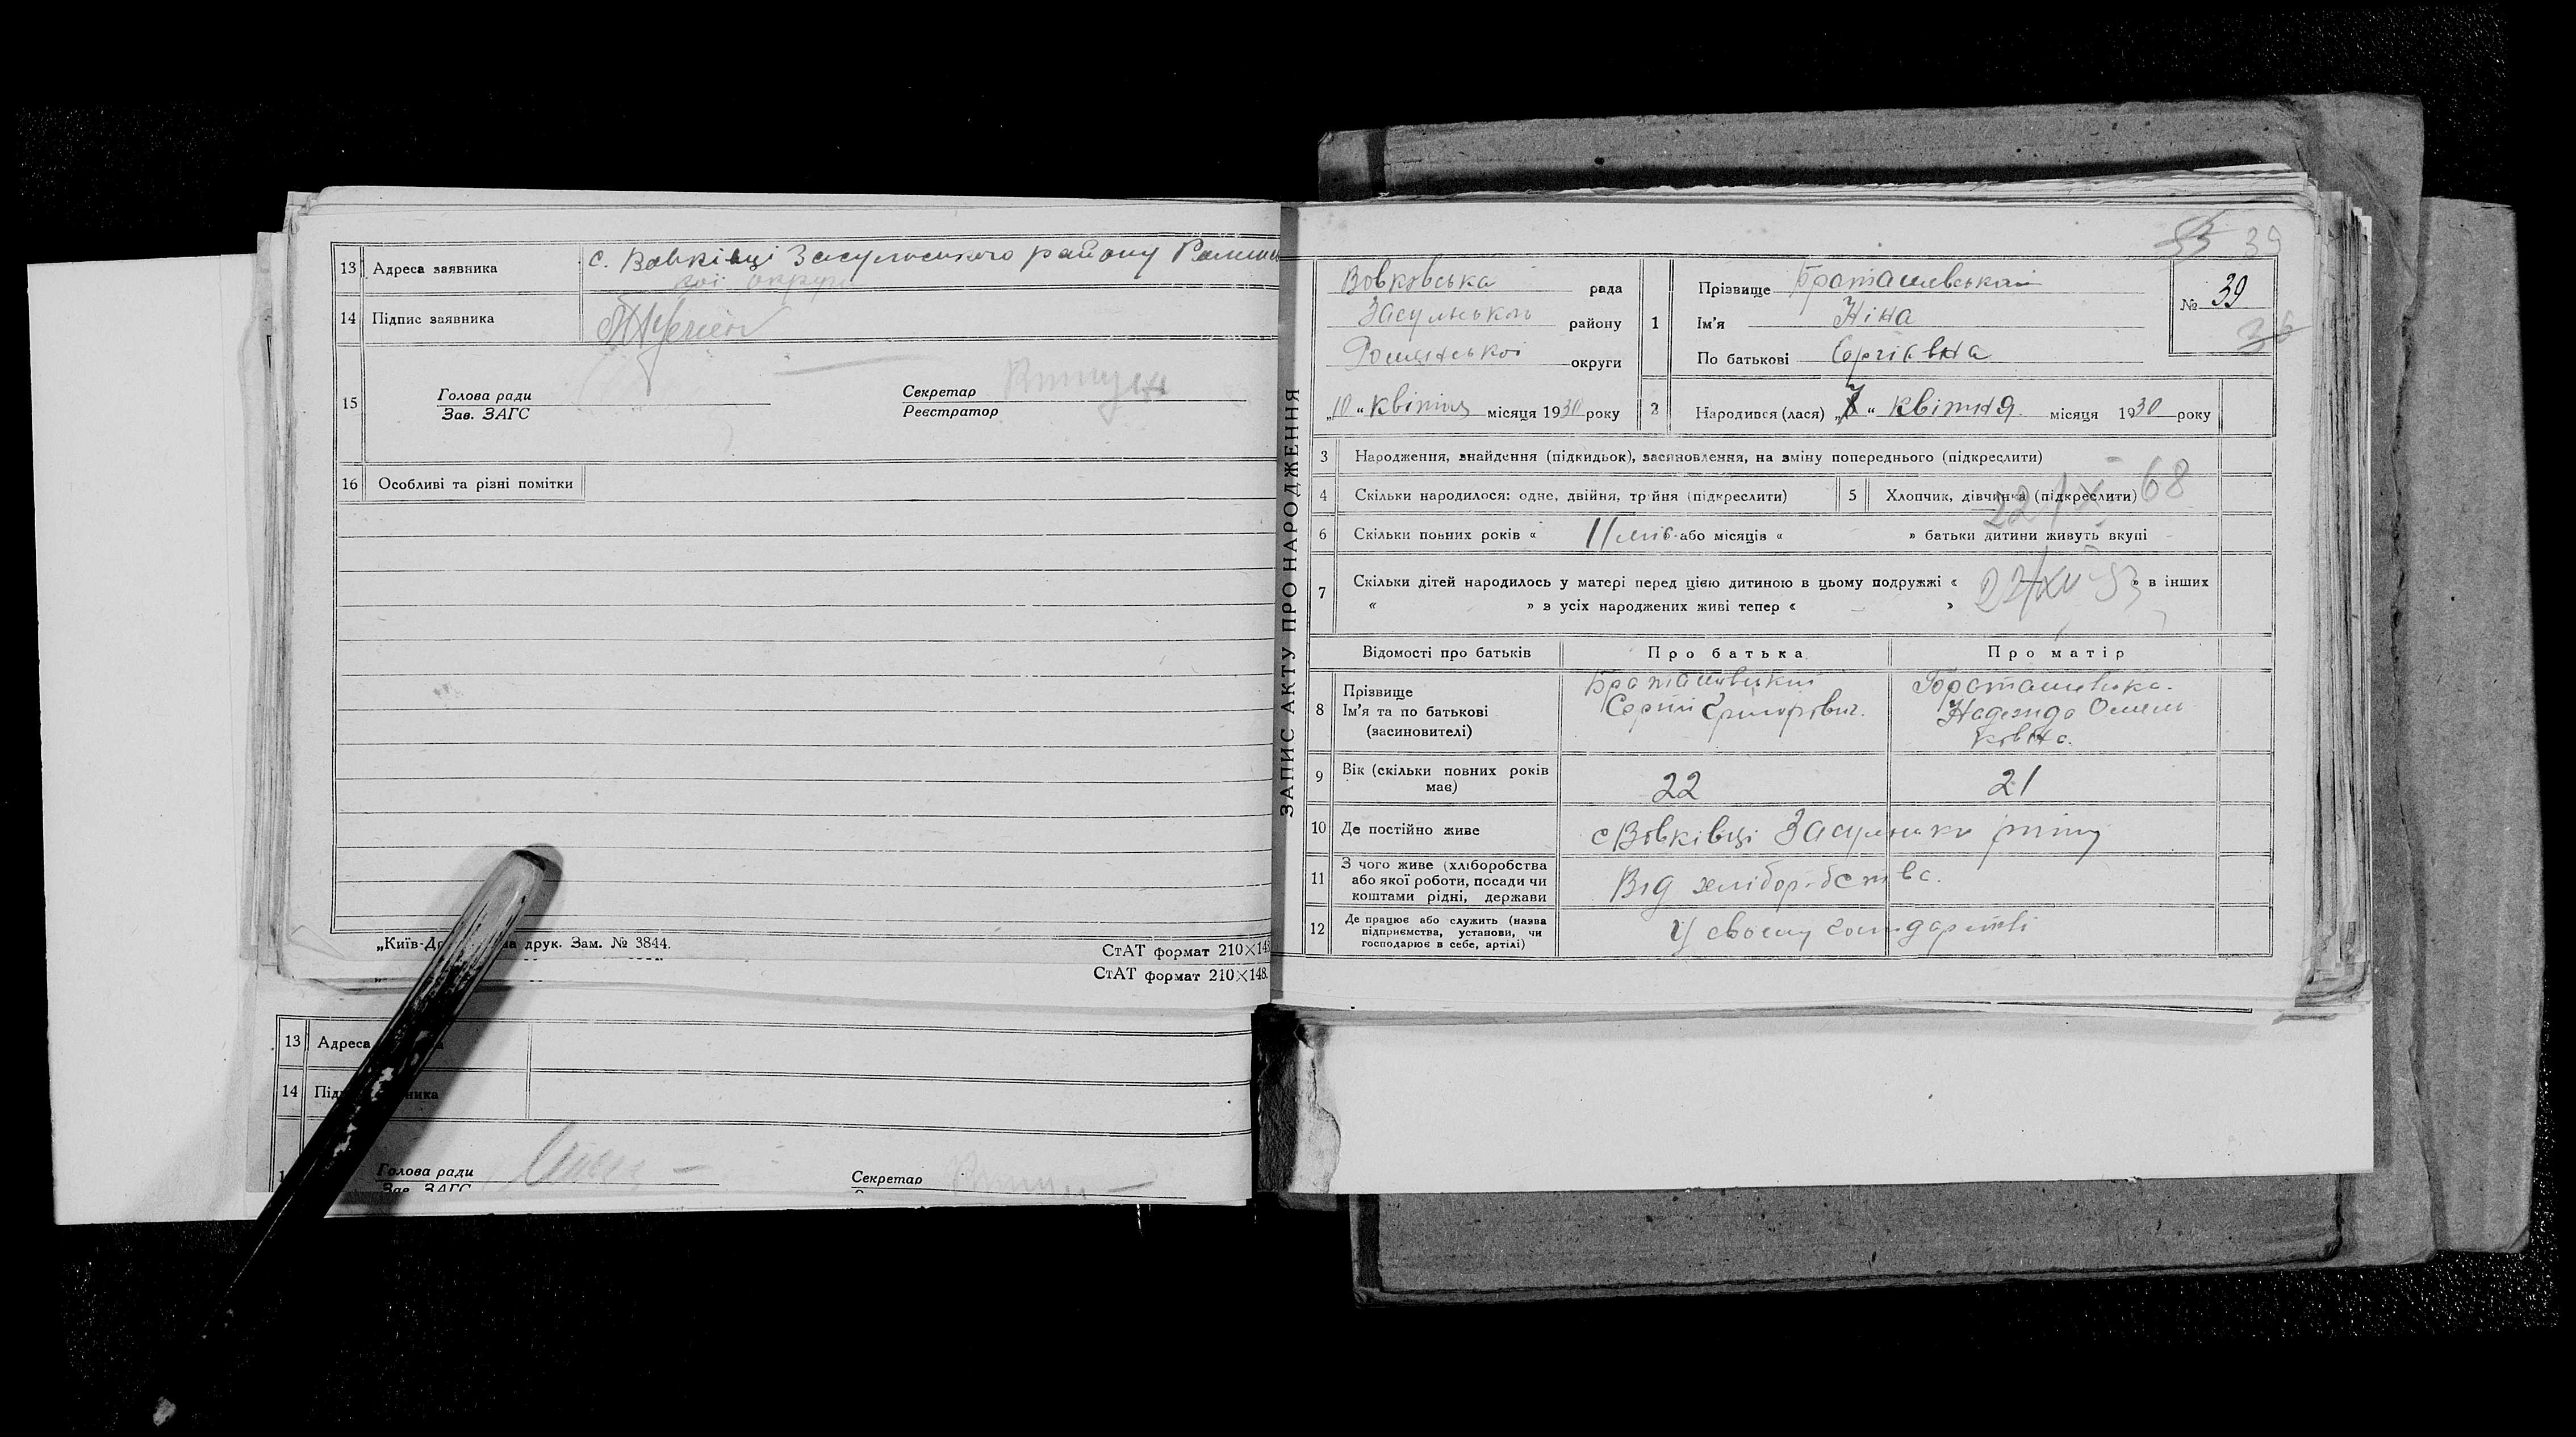 13 Адреса заявника с. Вовківці Засульського району Ромен
сої округи
14 Підпис заявника
15 Голова ради Секретар
Зав. ЗАГС Реєстратор
16 Особливі та різні помітки
„Київ-Др друк. Зам. № 3844.
СтАТ формат 210×148
СтАТ формат 210×148.
13 Адреса
14 Під ника
Голова ради Секретар
Зав. ЗАГС
ЗАПИС АКТУ ПРО НАРОДЖЕННЯ
53 39
Вовковська рада
Засульського району
Роменської округи
„10“ квітня місяця 1930 року
1 Прізвище Браташевська
Ім'я Ніна
По батькові Сергіївна
№ 39
36
2 Народився (лася) „7“ квітня місяця 1930 року
3 Народження, знайдення (підкидьок), засиновлення, на зміну попереднього (підкреслити)
4 Скільки народилося: одне, двійня, трійня (підкреслити) 5 Хлопчик, дівчинка (підкреслити)
22/X 68
6 Скільки повних років « 11 міс. або місяців « » батьки дитини живуть вкупі
7 Скільки дітей народилось у матері перед цією дитиною в цьому подружжі « » в інших
« » з усіх народжених живі тепер « »
Відомості про батьків Про батька Про матір
8 Прізвище Ім'я та по батькові (засиновителі)
Браташевський Сергій Григорович.
Браташевська. Надежда Омелковна.
9 Вік (скільки повних років має) 22 21
10 Де постійно живе с Вовківці Засульськ
11 З чого живе (хліборобства або якої роботи, посади чи коштами рідні, держави Від хліборобства.
12 Де працює або служить (назва підприємства, установи, чи господарює в себе, артілі) У своєму господарстві